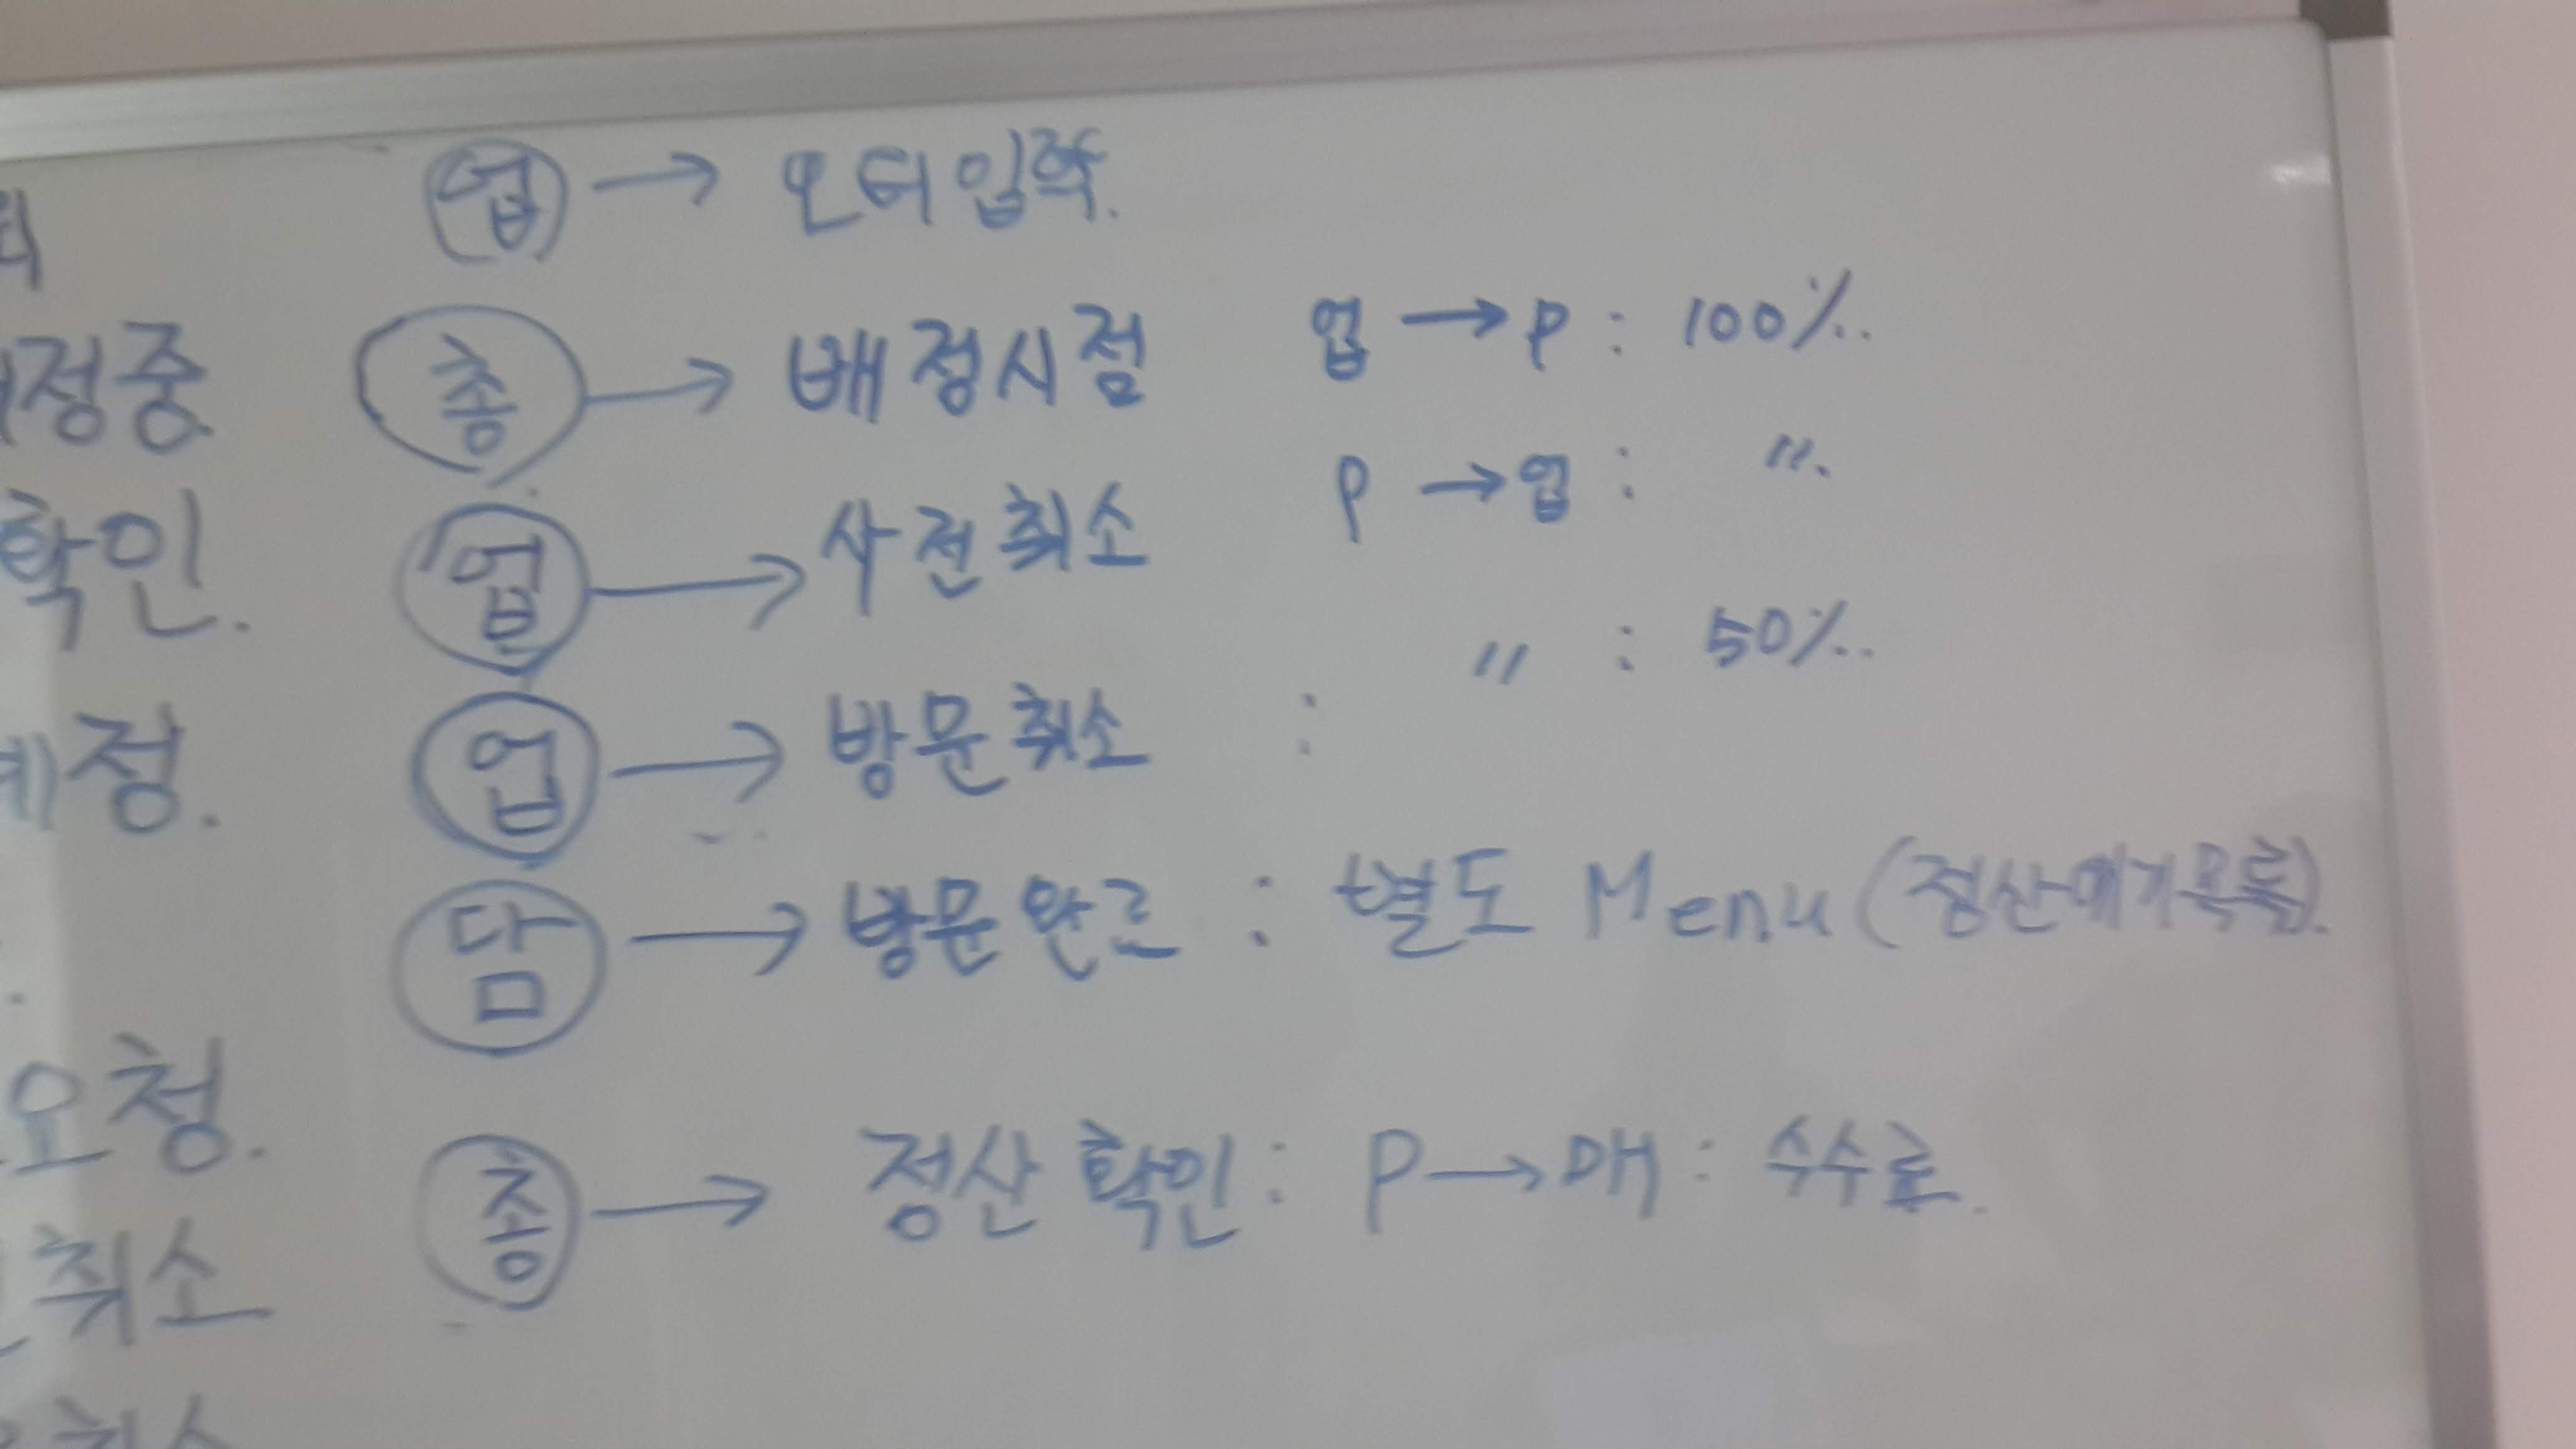 업 → 오더입학.
총 → 배정시점 업 → P : 100%.
P → 업 : 〃.
업 → 사전취소
〃 : 50%.
업 → 방문취소 :
담 → 방문완료 : 별도 Menu (정산대기목록).
총 → 정산확인 : P → 매 : 수수료.
정중
확인.
정.
요청.
취소
취소